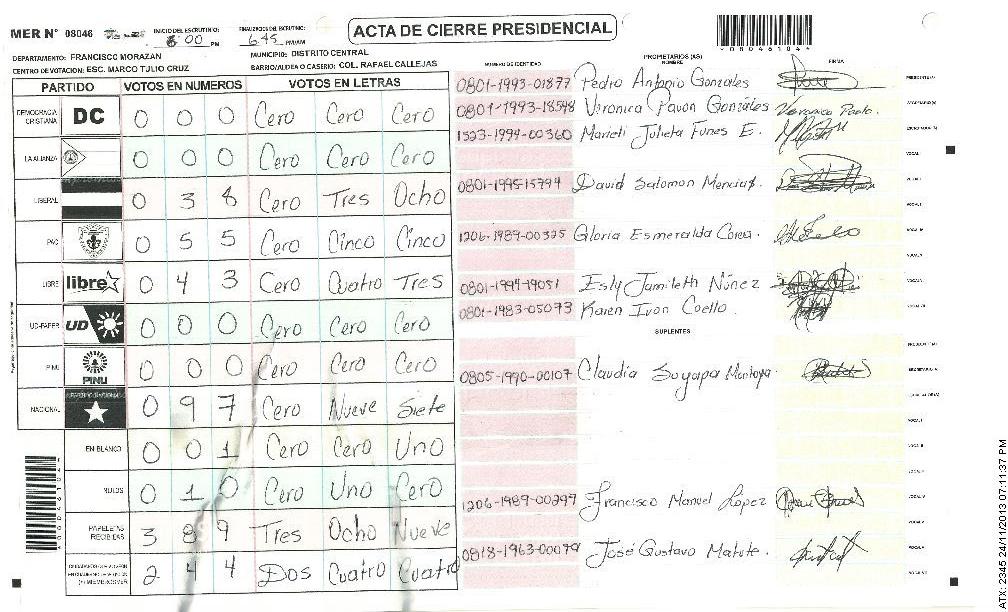 MER N° 08046 INICIO DEL ESCRUTINIO: 6:00 PM FINALIZACION DEL ESCRUTINIO: 6:45 PM/AM
ACTA DE CIERRE PRESIDENCIAL
DEPARTAMENTO: FRANCISCO MORAZAN MUNICIPIO: DISTRITO CENTRAL
CENTRO DE VOTACION: ESC. MARCO TULIO CRUZ BARRIO/ALDEA O CASERIO: COL. RAFAEL CALLEJAS
PARTIDO VOTOS EN NUMEROS VOTOS EN LETRAS
DEMOCRACIA CRISTIANA DC 0 0 0 Cero Cero Cero
LA ALIANZA 0 0 0 Cero Cero Cero
LIBERAL 0 3 8 Cero Tres Ocho
PAC 0 5 5 Cero Cinco Cinco
LIBRE libre 0 4 3 Cero Cuatro Tres
UD-FAPER UD 0 0 0 Cero Cero Cero
PINU PINU 0 0 0 Cero Cero Cero
NACIONAL 0 9 7 Cero Nueve Siete
EN BLANCO 0 0 1 Cero Cero Uno
NULOS 0 1 0 Cero Uno Cero
PAPELETAS RECIBIDAS 3 8 9 Tres Ocho Nueve
2 4 4 Dos Cuatro Cuatro
NUMERO DE IDENTIDAD PROPIETARIOS (AS) NOMBRE FIRMA
0801-1993-01877 Pedro Antonio Gonzales
0801-1993-18548 Veronica Pavon Gonzales
1523-1994-00360 Marieli Julieta Funes E.
0801-1995-15794 David Salomon Mencias.
1206-1989-00325 Gloria Esmeralda Corea
0801-1994-19051 Esly Jamileth Núnez
0801-1983-05073 Karen Ivon Coello.
SUPLENTES
0805-1990-00107 Claudia Soyapa Montoya.
1206-1989-00297 Francisco Manuel Lopez
0818-1963-00079 José Gustavo Matute.
ATX: 2345 24/11/2013 07:11:37 PM